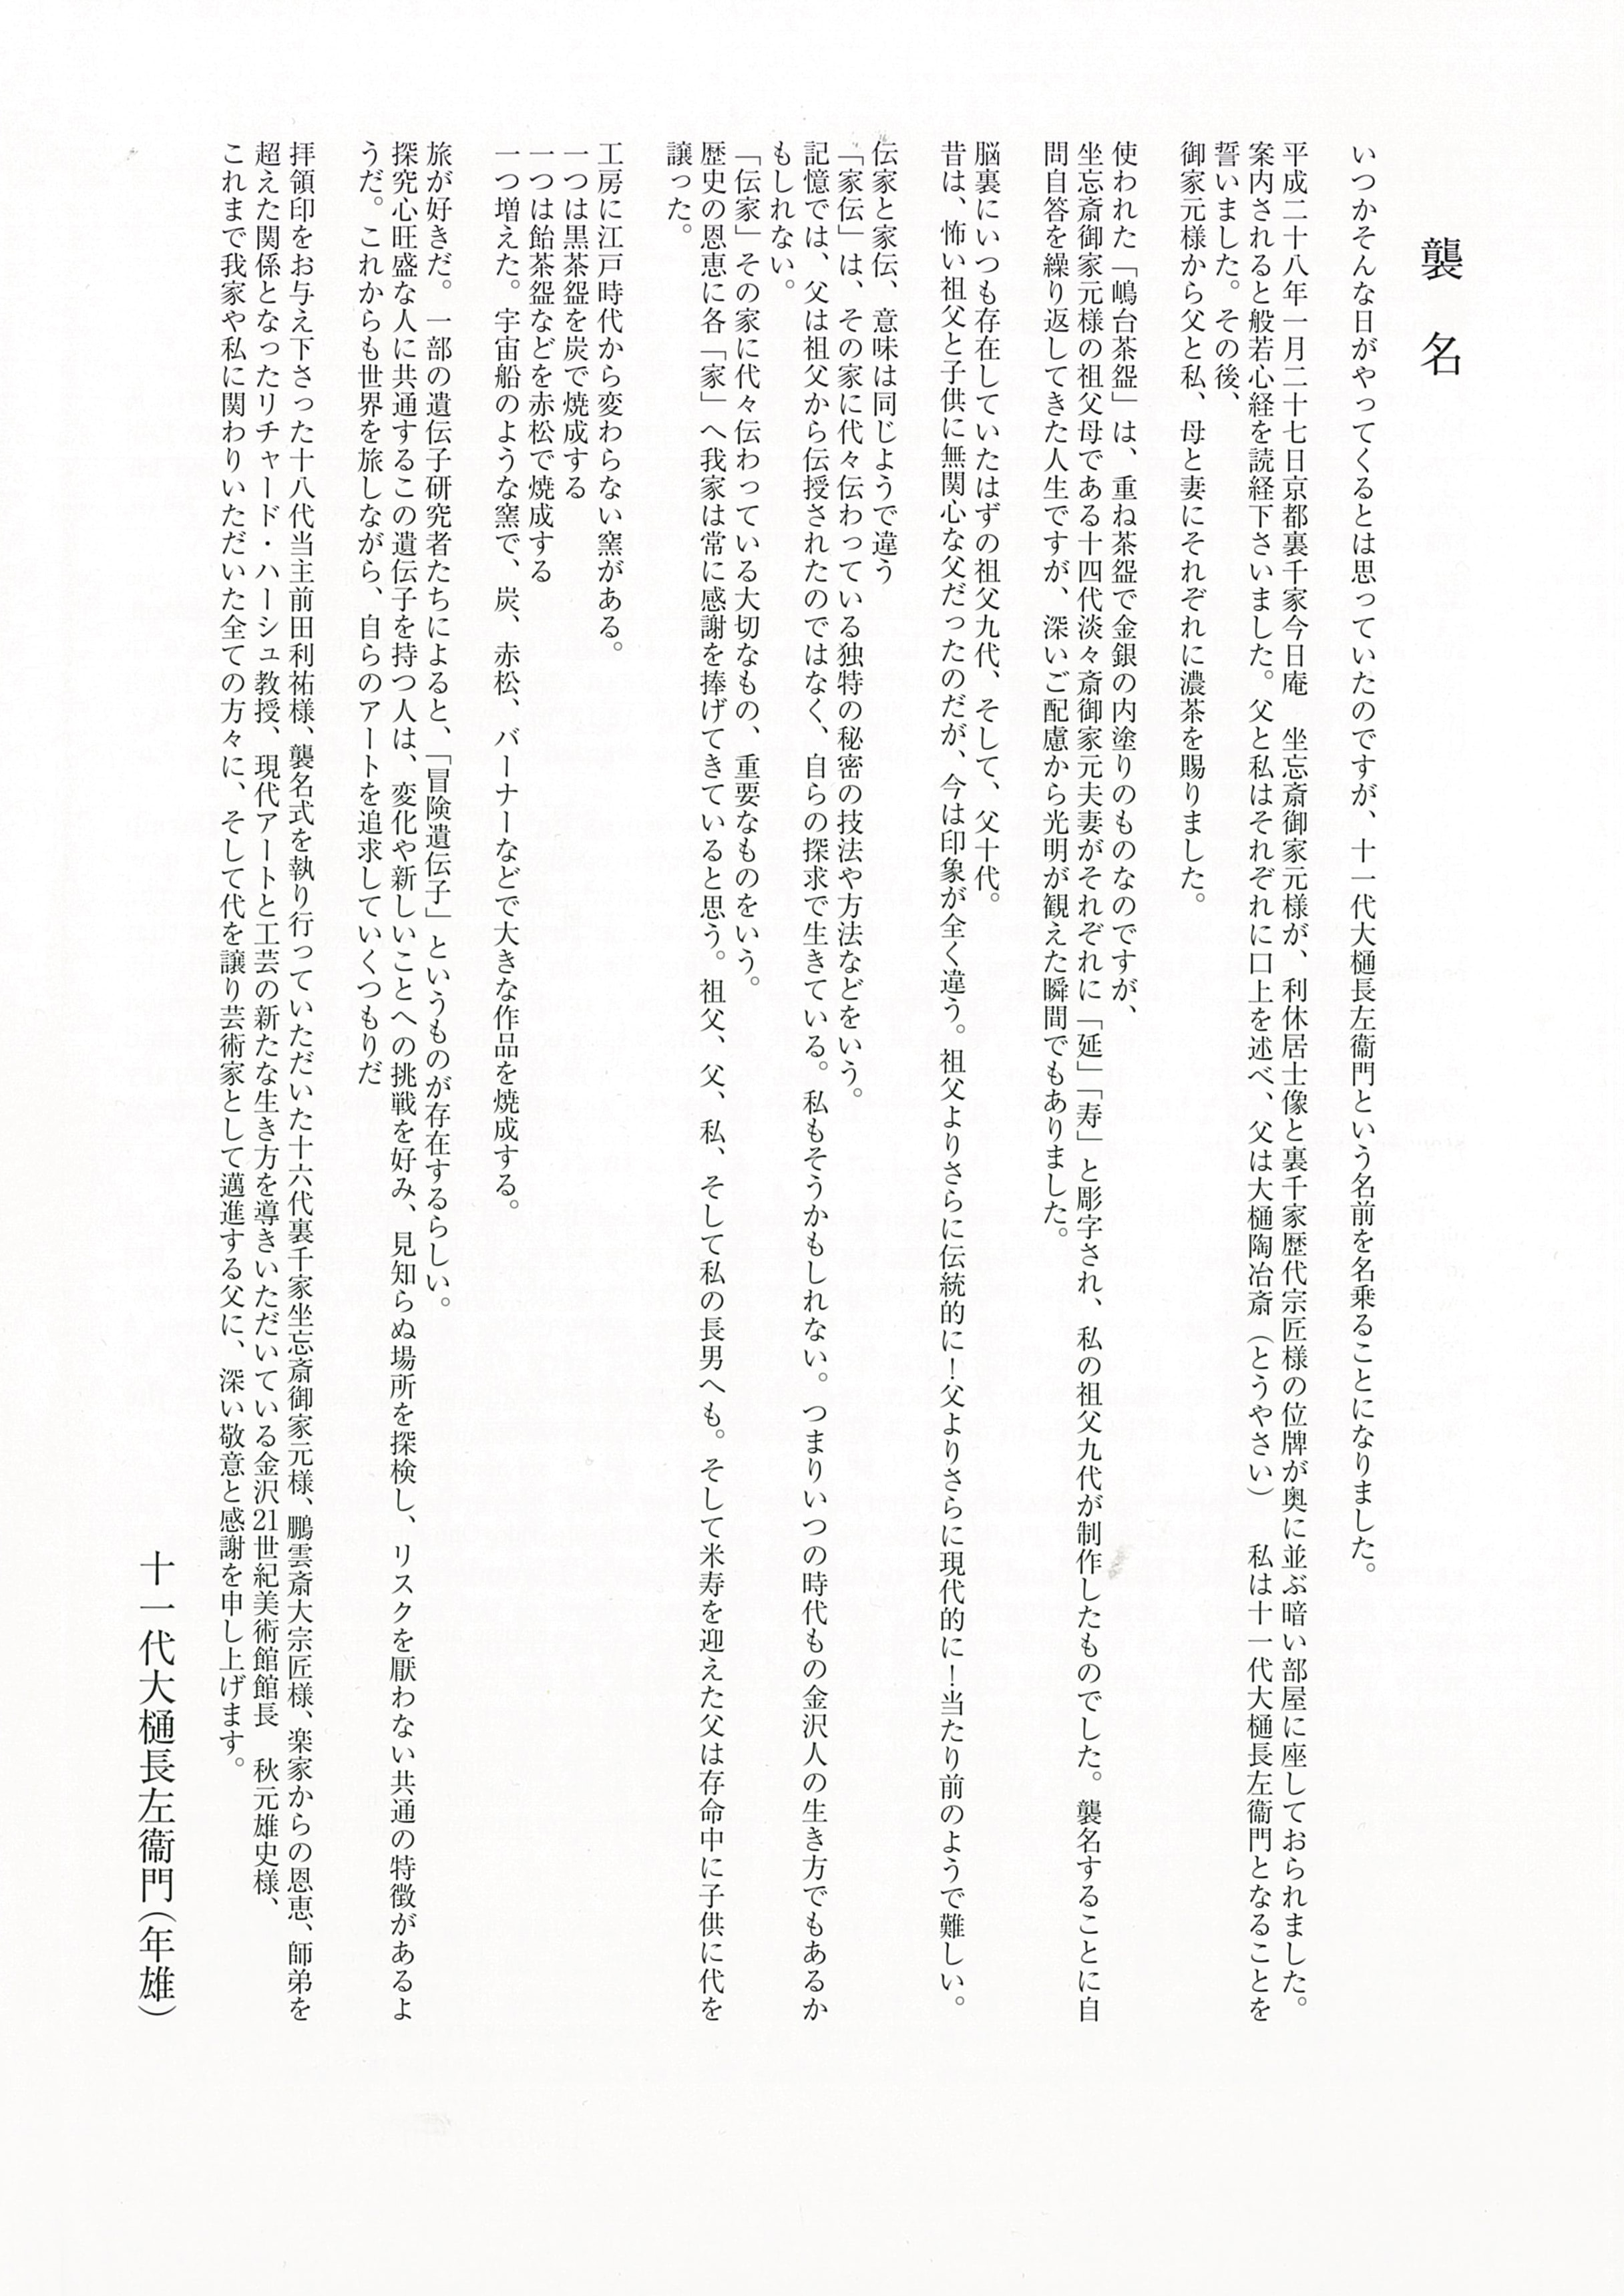 襲 名
いつかそんな日がやってくるとは思っていたのですが、十一代大樋長左衞門という名前を名乗ることになりました。
平成二十八年一月二十七日京都裏千家今日庵　坐忘斎御家元様が、利休居士像と裏千家歴代宗匠様の位牌が奥に並ぶ暗い部屋に座しておられました。
案内されると般若心経を読経下さいました。父と私はそれぞれに口上を述べ、父は大樋陶冶斎（とうやさい）　私は十一代大樋長左衞門となることを
誓いました。その後、
御家元様から父と私、母と妻にそれぞれに濃茶を賜りました。
使われた「嶋台茶盌」は、重ね茶盌で金銀の内塗りのものなのですが、
坐忘斎御家元様の祖父母である十四代淡々斎御家元夫妻がそれぞれに「延」「寿」と彫字され、私の祖父九代が制作したものでした。襲名することに自
問自答を繰り返してきた人生ですが、深いご配慮から光明が観えた瞬間でもありました。
脳裏にいつも存在していたはずの祖父九代、そして、父十代。
昔は、怖い祖父と子供に無関心な父だったのだが、今は印象が全く違う。祖父よりさらに伝統的に！父よりさらに現代的に！当たり前のようで難しい。
伝家と家伝、意味は同じようで違う
「家伝」は、その家に代々伝わっている独特の秘密の技法や方法などをいう。
記憶では、父は祖父から伝授されたのではなく、自らの探求で生きている。私もそうかもしれない。つまりいつの時代もの金沢人の生き方でもあるか
もしれない。
「伝家」その家に代々伝わっている大切なもの、重要なものをいう。
歴史の恩恵に各「家」へ我家は常に感謝を捧げてきていると思う。祖父、父、私、そして私の長男へも。そして米寿を迎えた父は存命中に子供に代を
譲った。
工房に江戸時代から変わらない窯がある。
一つは黒茶盌を炭で焼成する
一つは飴茶盌などを赤松で焼成する
一つ増えた。宇宙船のような窯で、炭、赤松、バーナーなどで大きな作品を焼成する。
旅が好きだ。一部の遺伝子研究者たちによると、「冒険遺伝子」というものが存在するらしい。
探究心旺盛な人に共通するこの遺伝子を持つ人は、変化や新しいことへの挑戦を好み、見知らぬ場所を探検し、リスクを厭わない共通の特徴があるよ
うだ。これからも世界を旅しながら、自らのアートを追求していくつもりだ
拝領印をお与え下さった十八代当主前田利祐様、襲名式を執り行っていただいた十六代裏千家坐忘斎御家元様、鵬雲斎大宗匠様、楽家からの恩恵、師弟を
超えた関係となったリチャード・ハーシュ教授、現代アートと工芸の新たな生き方を導きいただいている金沢21世紀美術館館長　秋元雄史様、
これまで我家や私に関わりいただいた全ての方々に、そして代を譲り芸術家として邁進する父に、深い敬意と感謝を申し上げます。
十一代大樋長左衞門（年雄）